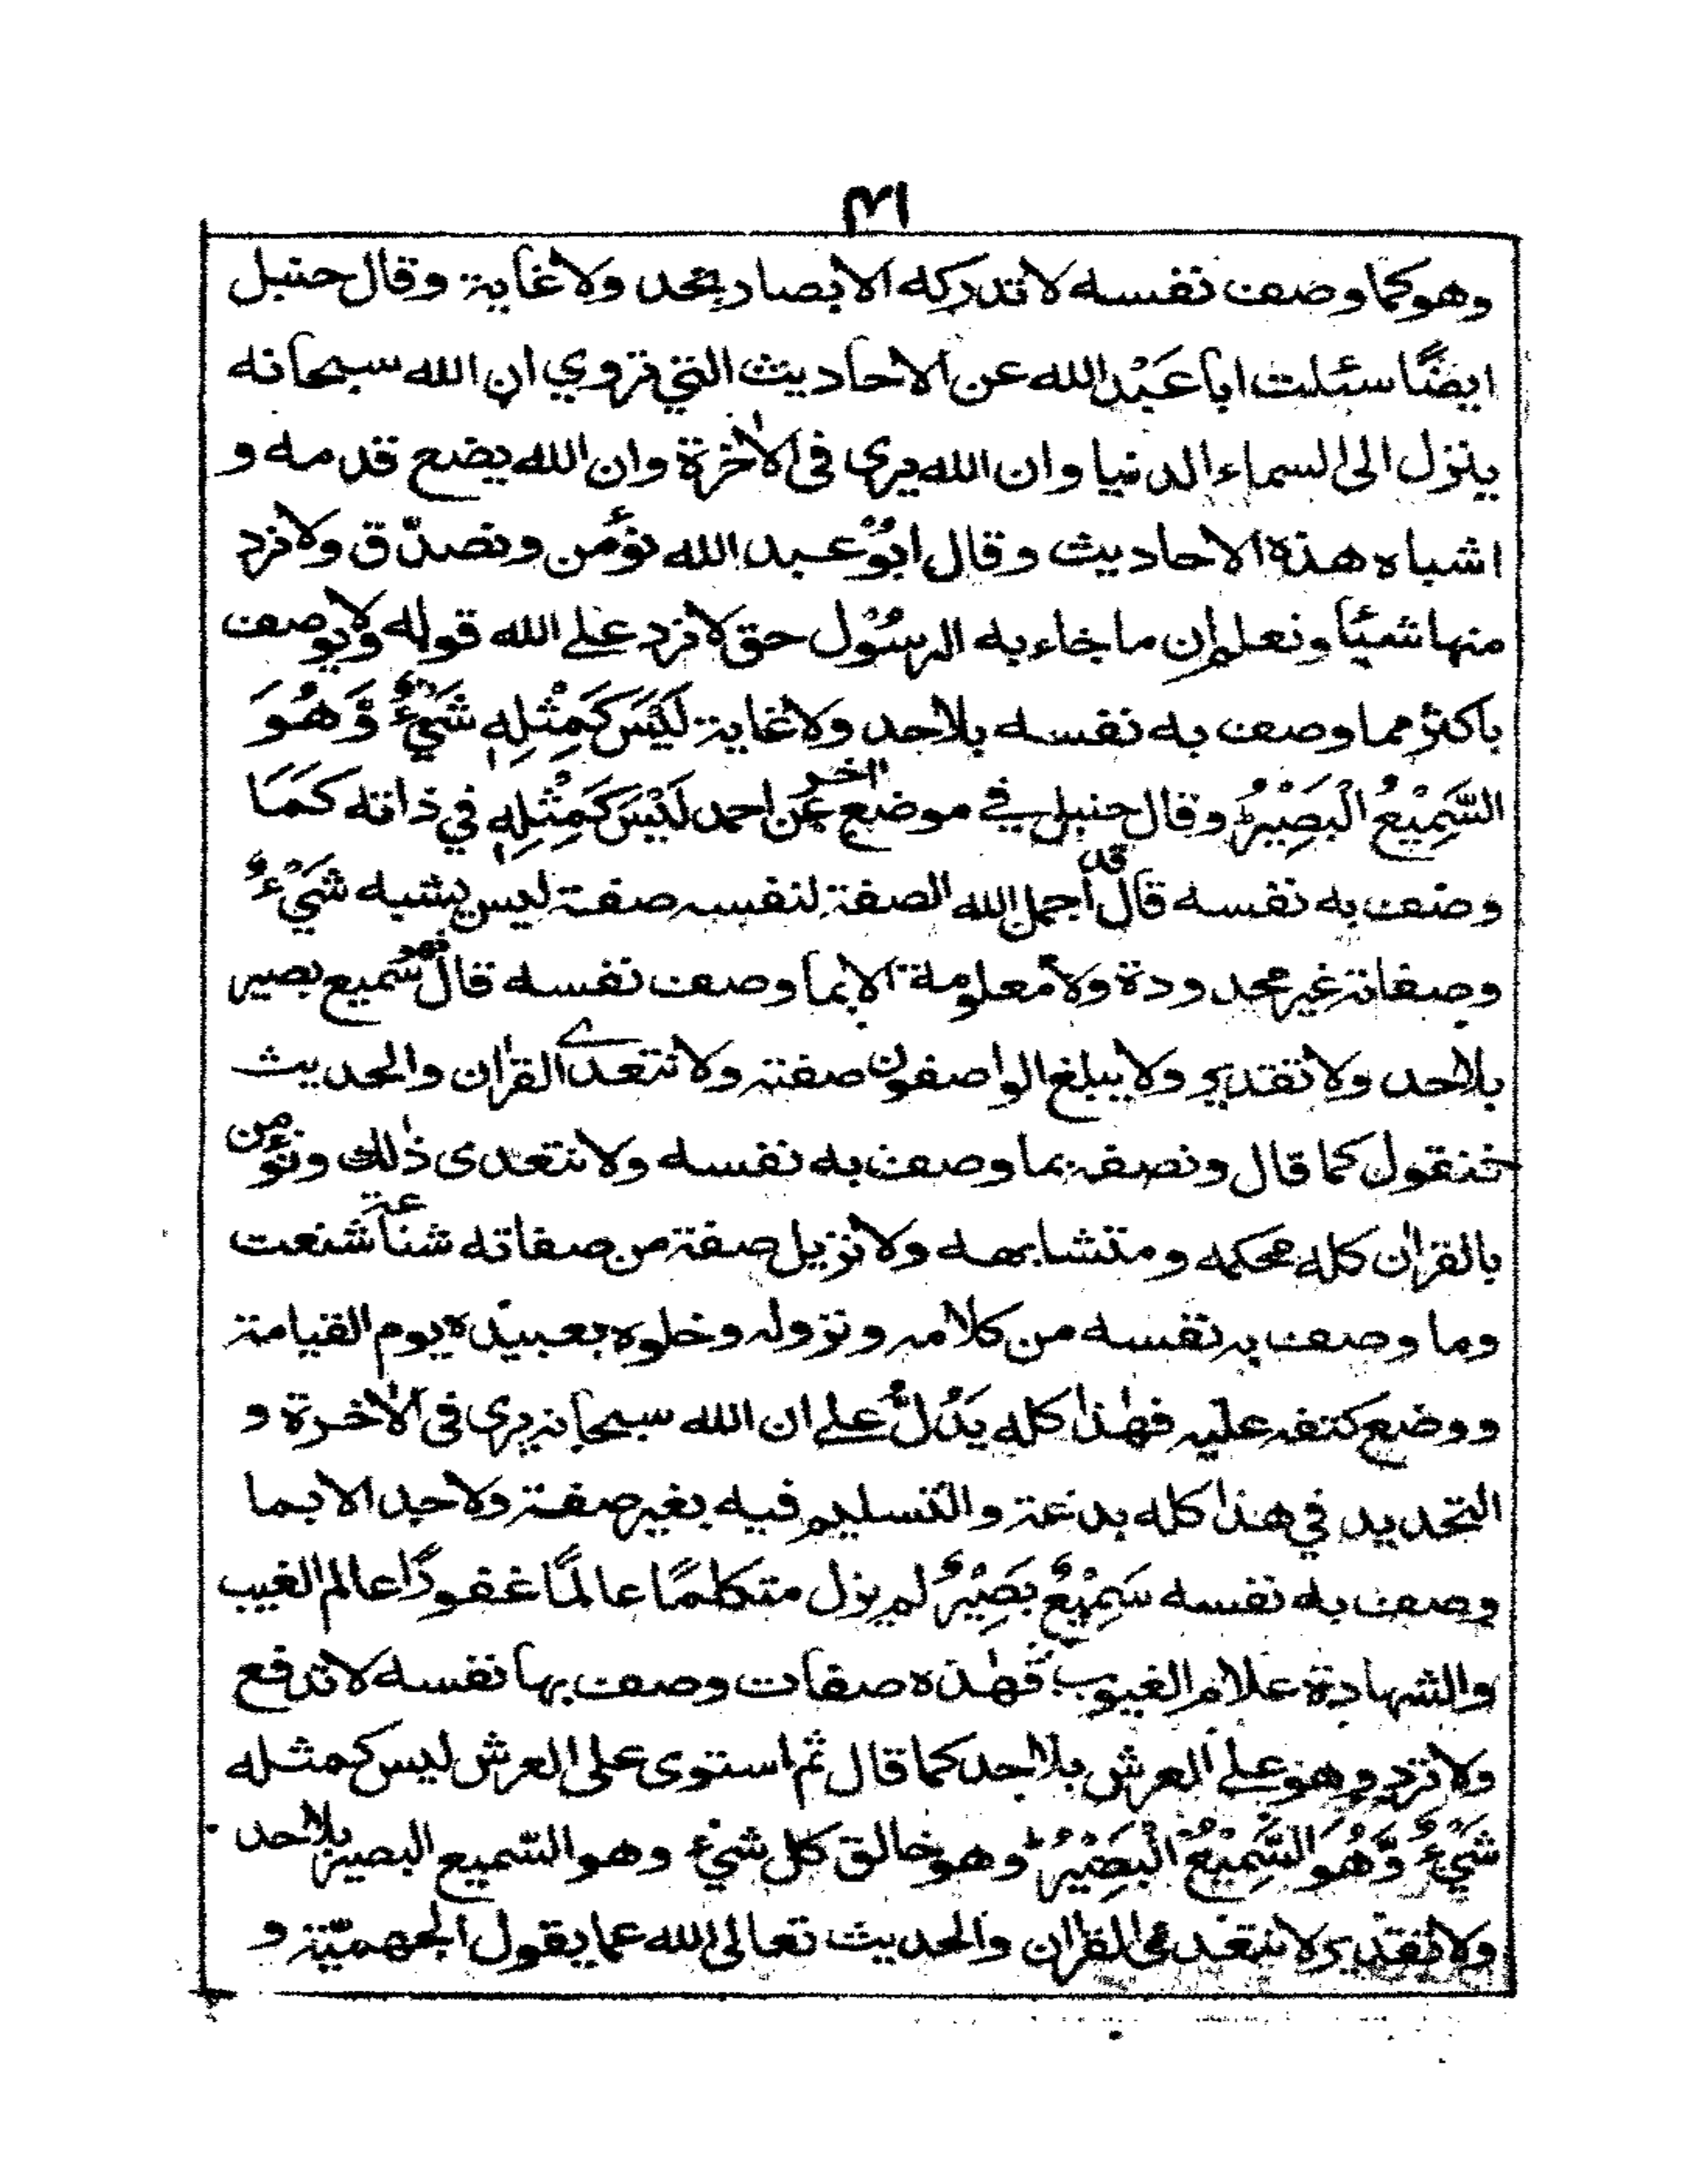 ١٣
وهو كما وصف نفسه لا تدركه الابصار بحد ولا غاية وقال حنبل
ايضًا سئلت ابا عَبْد الله عن الاحاديث التي تروي ان الله سبحانه
ينزل الى السماء الدنيا وان الله يرى فى الاٰخرة وان الله يضع قدمه و
اشباه هذه الاحاديث وقال ابُوْ عبد الله نؤمن ونصدّق ولا نرد
منها شيئًا ونعلم ان ما جاء به الرسُوْل حق لا نرد على الله قوله ولا يوصف
باكثر مما وصف به نفسه بلا حد ولا غاية لَيْسَ كَمِثْلِهٖ شَيْءٌ وَّهُوَ
السَّمِيْعُ الْبَصِيْرُ وقال حنبل في موضع اخر عَن احمد لَيْسَ كَمِثْلِهٖ في ذاته كَمَا
وصف به نفسه قال قد اجمل الله الصفة لنفسه صفة ليس يشبه شَيْءٌ
وصفاته غير محدودة ولا معلومة الا بما وصف نفسه قال فهو سميع بصير
بلا حد ولا تقدير ولا يبلغ الواصفون صفته ولا نتعدے القراٰن والحديث
فنقول كما قال ونصفه بما وصف به نفسه ولا نتعدى ذٰلك ونؤمن
بالقراٰن كله محكمه ومتشابهه ولا نزيل صفة من صفاته شناعة شنعت
وما وصف به نفسه من كلامه ونزوله وخلوه بعبيده يوم القيامة
ووضع كتفه عليه فهٰذا كله يَدُلُّ على ان الله سبحانه يرى فى الاٰخرة و
التحديد في هذا كله بدعة والتسليم فيه بغير صفة ولا حد الا بما
وصف به نفسه سَمِيْعٌ بَصِيْرٌ لم يزل متكلمًا عالمًا غفورًا عالم الغيب
والشهادة علام الغيوب فهٰذه صفات وصف بها نفسه لا تدفع
ولا ترد وهو على العرش بلا حد كما قال ثم استوى على العرش ليس كمثله
شَيْءٌ وَّهُوَ السَّمِيْعُ الْبَصِيْرُ وهو خالق كل شيء وهو السميع البصير بلا حد
ولا تقدير لا نتعدى القراٰن والحديث تعالى الله عما يقول الجهميّة و